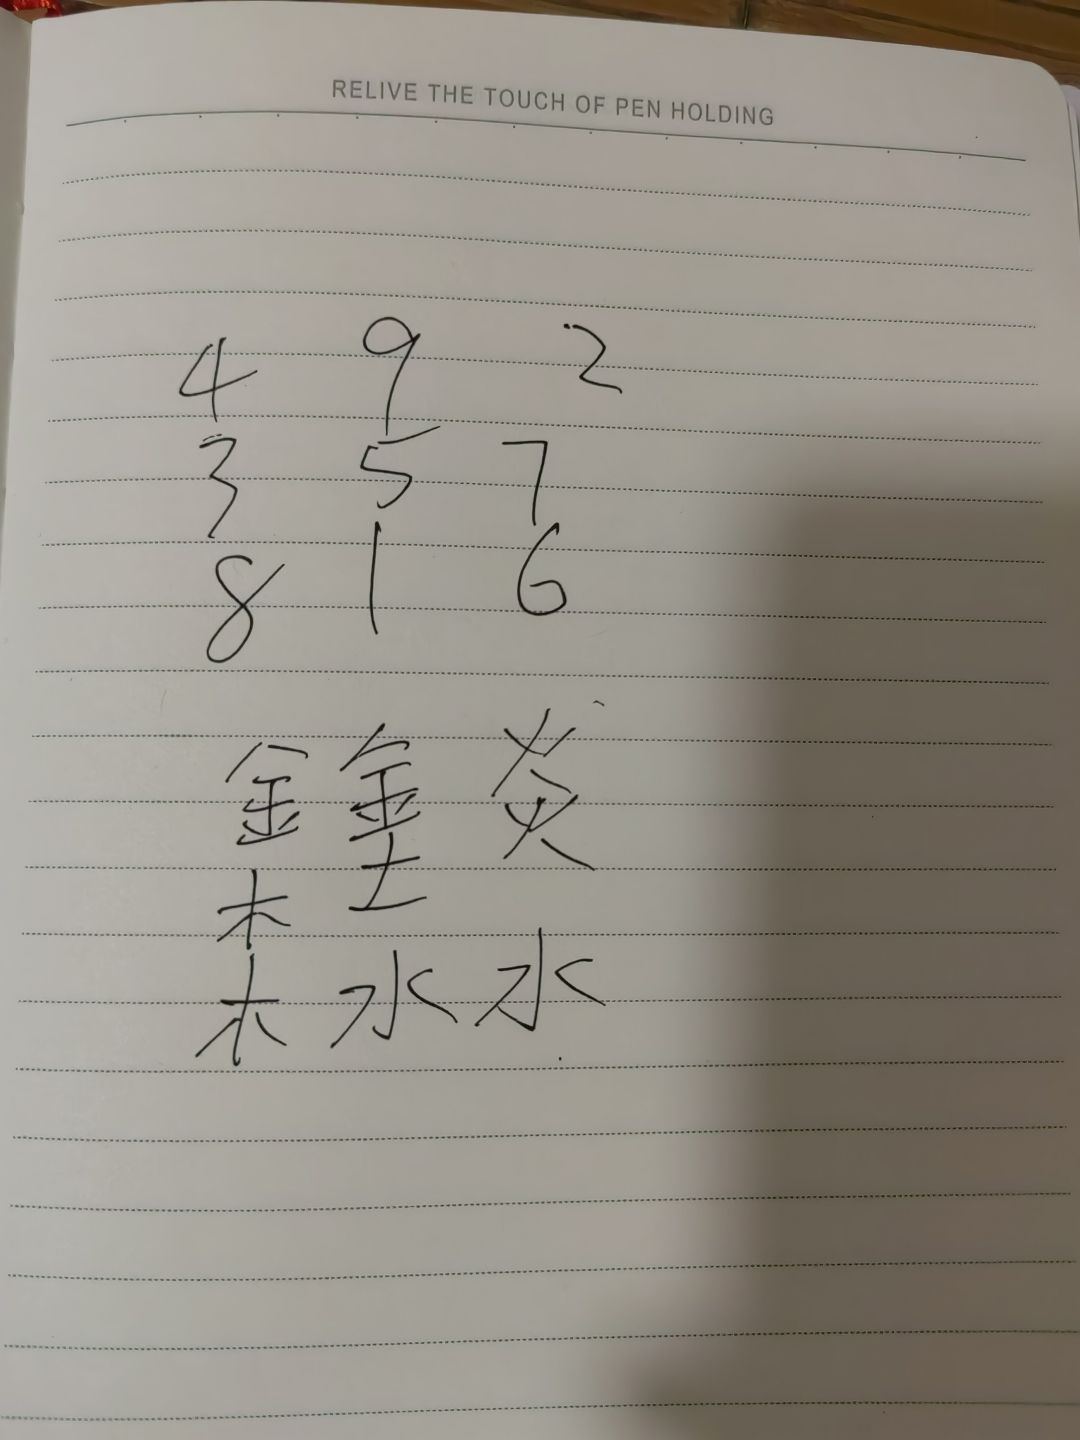 RELIVE THE TOUCH OF PEN HOLDING
4 9 2
3 5 7
8 1 6
金 金 火
木 土 火
木 水 水